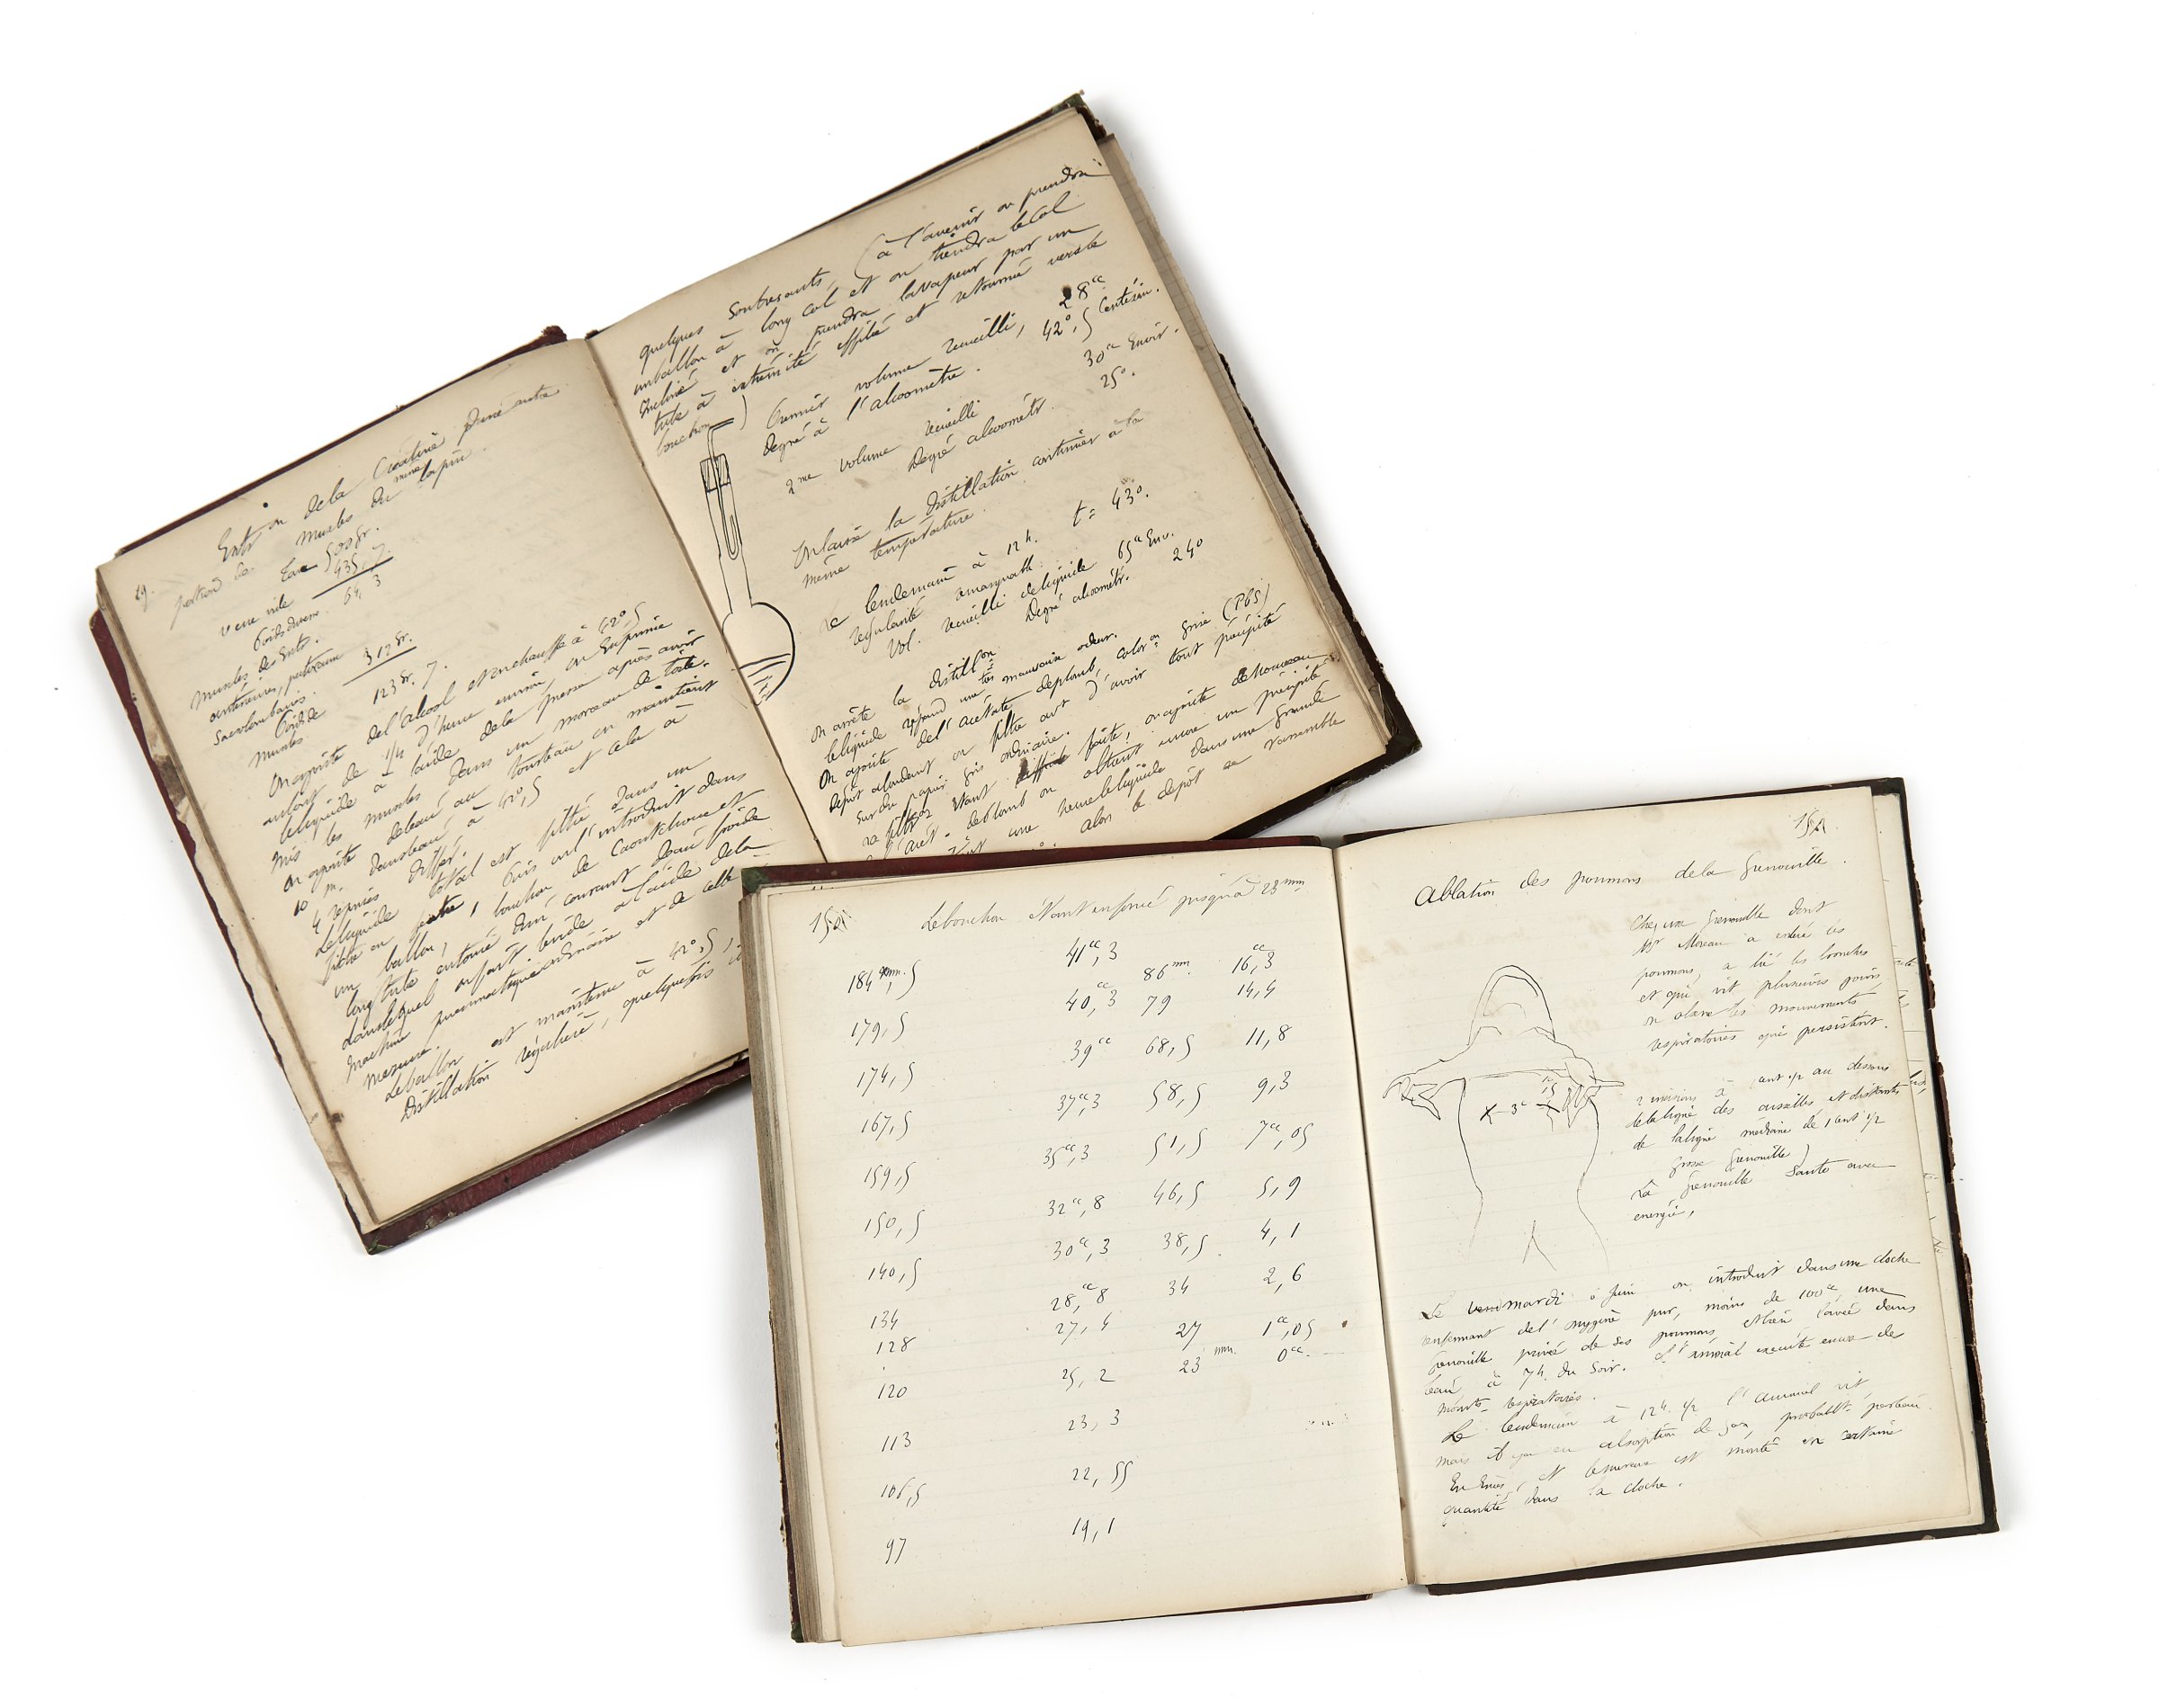 19.
Extr on de la Créatine d'une autre
portion de muscles du même lapin.
Tare 500 gr.
verre vide 435, 7.
Poids du verre. 64, 3
Muscles des Extr.
antérieures, pectoraux
sacro lombaires. 312 gr.
Poids de
muscles 123 gr. 7.
On ajoute de l'alcool et on chauffe à 42°,5
autant de 1/4 d'heure environ, on exprime
le liquide à l'aide de la presse après avoir
mis les muscles dans un morceau de toile.
On ajoute de l'eau au tourteau en maintient
10 m. dans l'eau, à 42°,5 et cela à
4 reprises différ.
Le liquide total est filtré dans un
filtre en puis on l'introduit dans
un ballon, 1 bouchon de Caoutchouc et
long tube entouré d'un courant d'eau froide
dans lequel on fait le vide à l'aide de la
machine pneumatique ordinaire et de celle
mercure.
Le ballon est maintenu à 42°,5,
Distillation régulière, quelquefois
quelques soubresauts, (à l'avenir on prendra
un ballon à long col et on tiendra le Col
incliné et on prendra la vapeur par un
tube à extrémité effilée et retournée vers le
bouchon)
Premier volume recueilli, 28 cc
Degré à l'alcoomètre. 42°,5 Centésim.
2me volume recueilli 30 cc Envir.
Degré alcoométr. 25°.
On laisse la Distillation continuer à la
même température.
Le lendemain à 12 h. t = 43°.
régularité remarquable.
Vol. recueilli de liquide 65 cc Env.
Degré alcoométr. 24°
On arrête la distillon.
le liquide répand une très mauvaise odeur.
On ajoute de l'acétate de plomb, color on grise (PbS)
Dépôt abondant on filtre avt d'avoir tout précipité
sur du papier gris ordinaire.
La filtron étant faite, on ajoute de nouveau
l'acét. de plomb on obtient encore un précipité
une le liquide dans une grande
alors le dépôt se rassemble
150
Le bouchon étant enfoncé jusqu'à 23 mm
184 mm,5 41 cc,3 86 mm 16 cc,3
179,5 40 cc,3 79 14,4
174,5 39 cc 68,5 11,8
167,5 37 cc,3 58,5 9,3
159,5 35 cc,3 51,5 7 cc,05
150,5 32 cc,8 46,5 5,9
140,5 30 cc,3 38,5 4,1
134 28 cc,8 34 2,6
128 27,4 27 1 cc,05
120 25,2 23 mm. 0 cc.
113 23,3
106,5 22,55
97 19,1
151.
Ablation des poumons de la Grenouille.
Chez une Grenouille dont
Mr Moreau a enlevé les
poumons, a lié les bronches
et qui vit plusieurs jours,
on observe les mouvements
respiratoires qui persistent.
2 incisions à 1 cent 1/2 au dessous
de la ligne des aisselles et distantes
de la ligne médiane de 1 cent 1/2
grosse Grenouille)
La Grenouille saute avec
energie,
3 c
Le mardi 6 Juin on introduit dans une cloche
renfermant de l'oxygène pur, moins de 100 cc, une
Grenouille privée de ses poumons et bien lavée dans
l'eau à 7 h. du soir. L'animal exécute encore des
mouvts respiratoires.
Le lendemain à 12 h. 1/2 l'animal vit
mais il y a eu absorption de gaz, probablt. par la
et le mercure est monté en certaine
quantité dans la cloche.